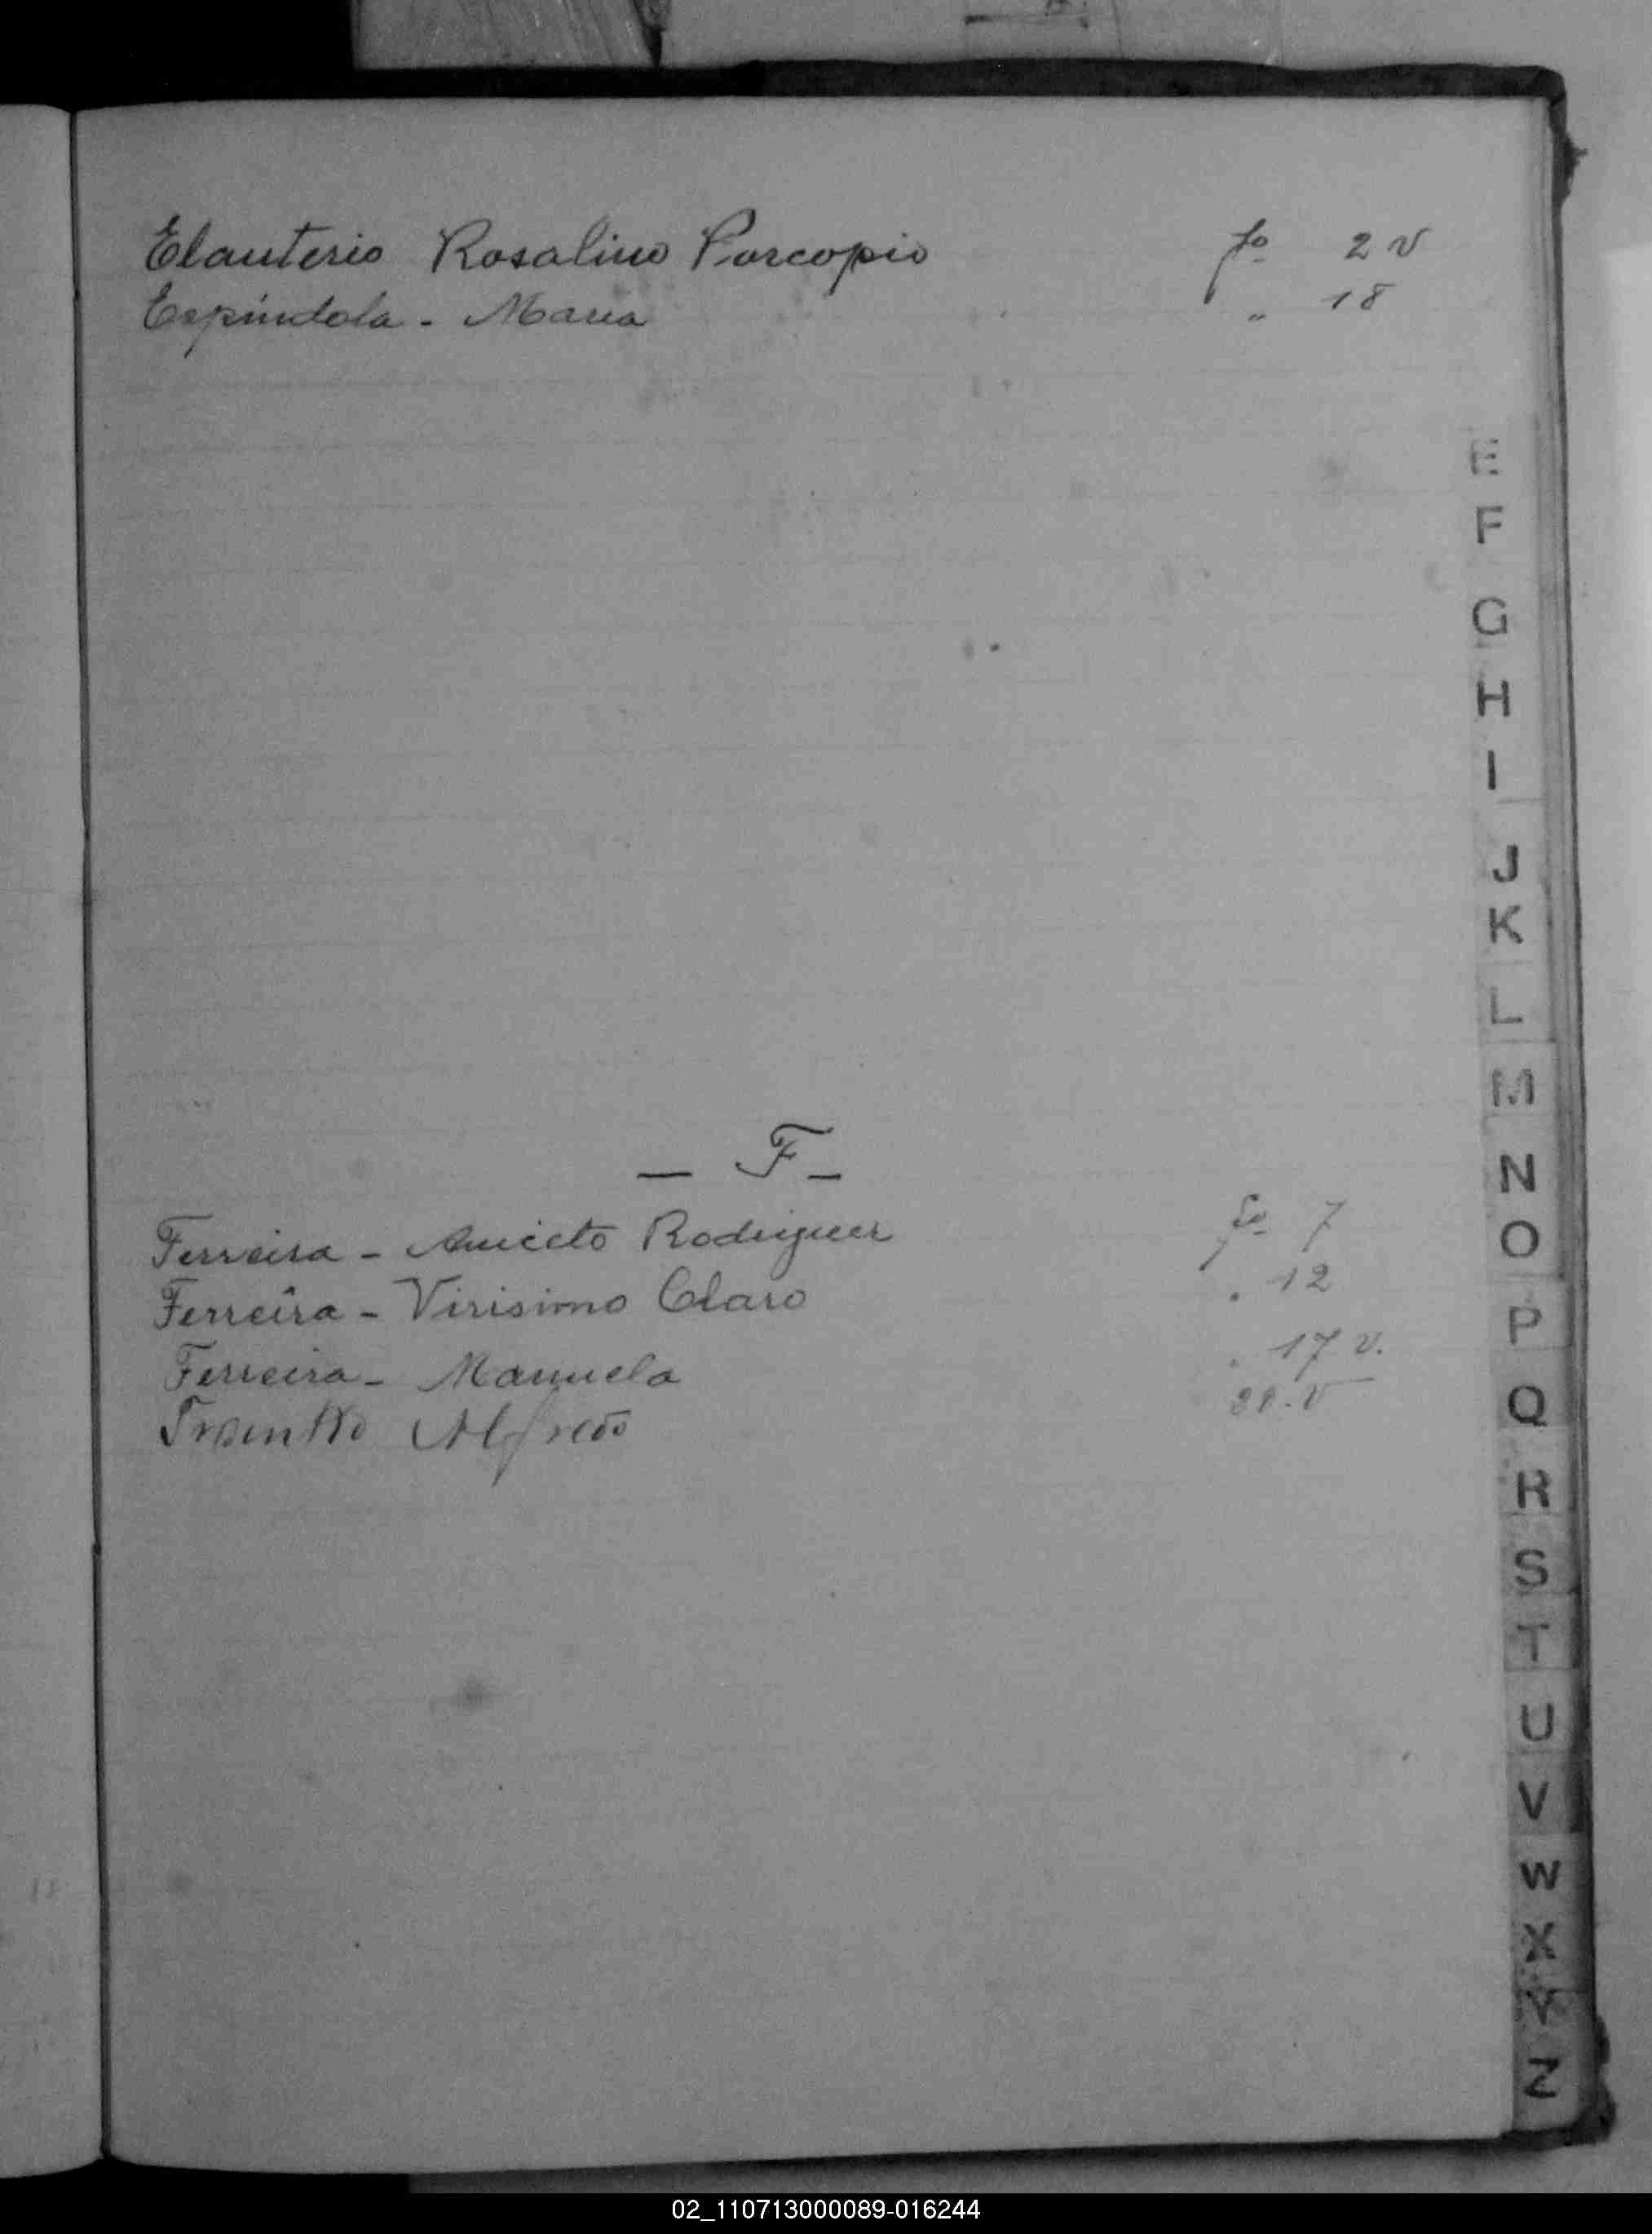 Elauterio Rosalino Porcopio fo 2 v
Espindola - Maria " 18
- F -
Ferreira - Aniceto Rodriguez fo 7
Ferreira - Virisimo Claro " 12
Ferreira - Manuela " 17 v.
Alfredo
E
F
G
H
I
J
K
L
M
N
O
P
Q
R
S
T
U
V
W
X
Y
Z
02_110713000089-016244